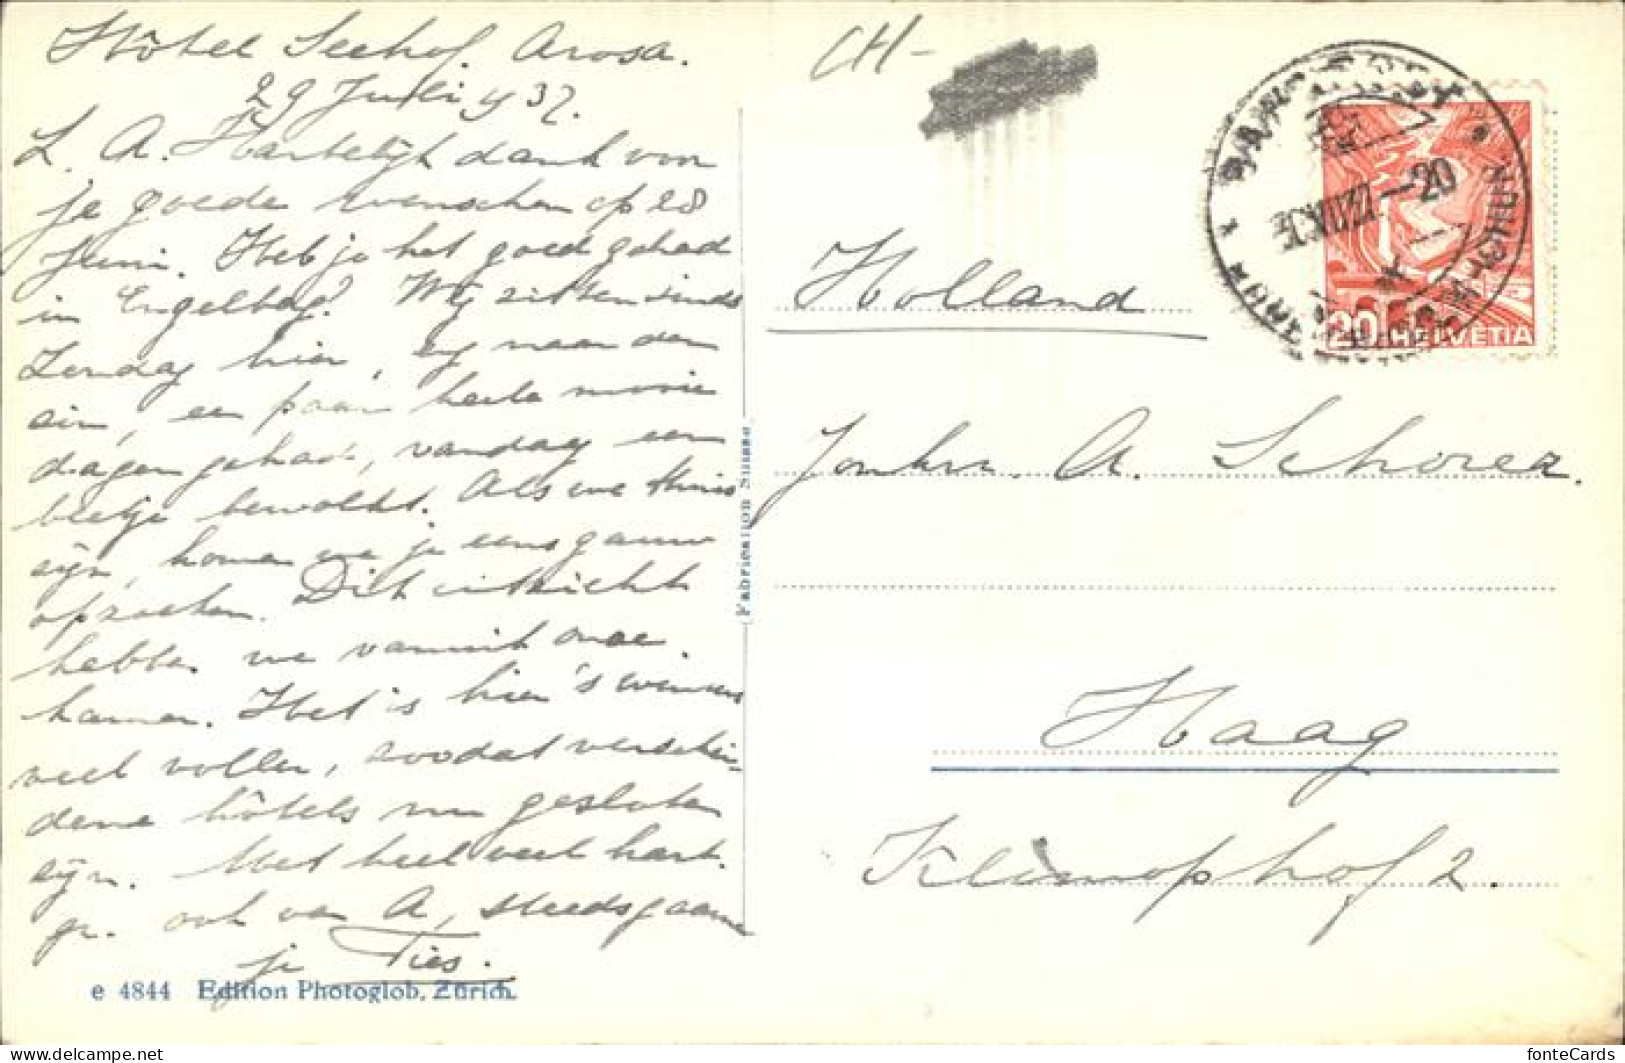 Hôtel Seehof. Arosa.
29 Juli 37.
L. A. Hartelijk dank voor
je goede wenschen op 28
Juni. Heb je het goed gehad
in Engelberg? Wij zitten sinds
Zondag hier, naar den
zin, en paar heele mooie
dagen gehad, vandaag een
beetje bewolkt. Als we thuis
zijn, komen we je eens gauw
opzoeken. Dit uitzicht
hebben we vanuit onze
kamer. Het is hier 's winters
veel voller, zoodat verschei-
dene hôtels nu gesloten
zijn. Met heel veel hart.
gr. ook van A, steeds gaarne
je Ties.
e 4844 Edition Photoglob, Zürich.
(Fabrication Suisse)
CH-
20 HELVETIA
Holland
Jonkvr. A. Schorer.
Haag
Klimophof 2.
fonteCards
delcampe.net